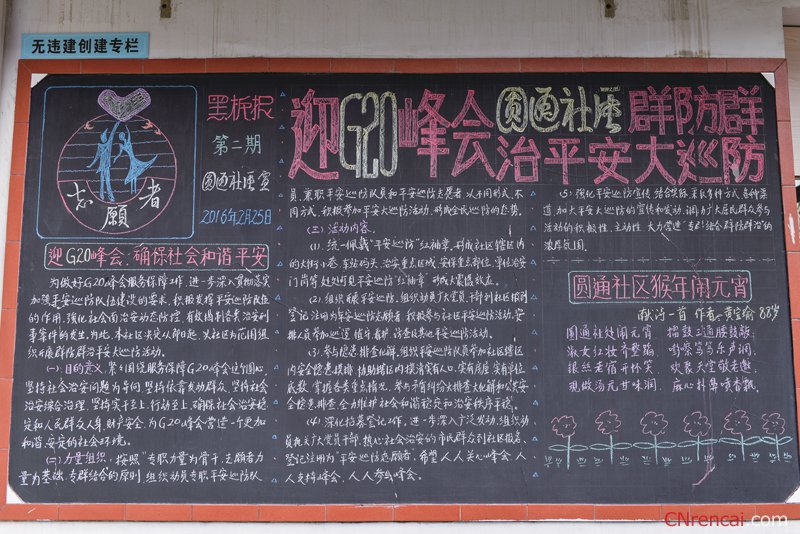 无违建创建专栏
志愿者
黑板报
第二期
圆通社区宣
2016年2月25日
迎G20峰会 圆通社区 群防群
治平安大巡防
迎G20峰会、确保社会和谐平安
为做好G20峰会服务保障工作，进一步深入贯彻落实
加强平安巡防队伍建设的要求，积极发挥平安巡防队伍
的作用，强化社会面治安动态防控，有效遏制各类治安刑
事案件的发生。为此，本社区决定从即日起，以社区为范围组
织开展群防群治平安大巡防活动。
(一)、目的意义
坚持社会治安问题为导向，坚持依靠发动群众，坚持社会
治安综合治理，坚持实干至上、行动至上，确保社会治安稳
定和人民群众人身、财产安全，为G20峰会营造一个更加
和谐、安定的社会环境。
(二)、力量组织，按照“专职力量为骨干，志愿者力
量为基础，专群结合的原则，组织动员专职平安巡防队
员，兼职平安巡防队员和平安巡防志愿者，以不同形式、不
同方式，积极参加平安大巡防活动，形成全民巡防的态势。
(三)、活动内容、
(1)、统一佩戴“平安巡防”红袖章，形成社区辖区内
的大街小巷、车站码头、治安重点区域、安保重点部位、单位治安
门岗等处处可见平安巡防“红袖章”形成大震慑效应。
(2)、组织开展平安巡防，组织动员广大党员、
登记注册为平安巡防志愿者，积极参与社区平安巡防活动，安
排人员参加巡逻、值守、看护、
(3)、参与隐患排查化解，组织平安巡防队员参加社区辖区
内安全隐患摸排，协助辖区内摸清实有人口、实有房屋、实有单位
底数，掌握各类重点情况，参与矛盾纠纷大排查大化解和公共安
全隐患排查，全力维护社会和谐稳定和治安秩序平稳。
(4)、深化招募登记工作，进一步深入广泛发动，组织动
员机关广大党员干部、热心社会治安的市民群众到社区报名、
登记注册为“平安巡防志愿者”，希望人人关心峰会、人
人支持峰会，人人参与峰会。
(5)、强化平安巡防宣传，结合实际，采取多种方式、各种渠
道，加大平安大巡防的宣传和发动，调动广大居民群众参与
活动的积极性、主动性，大力营造“专群结合群防群治”的
浓厚氛围。
圆通社区猴年闹元宵
献诗一首 作者：黄宝瑜 88岁
圆通社处闹元宵 擂鼓
淑女红妆齐整
银丝老宿
现做汤元甘味润 麻心扑鼻喷香飘
CNrencai.com